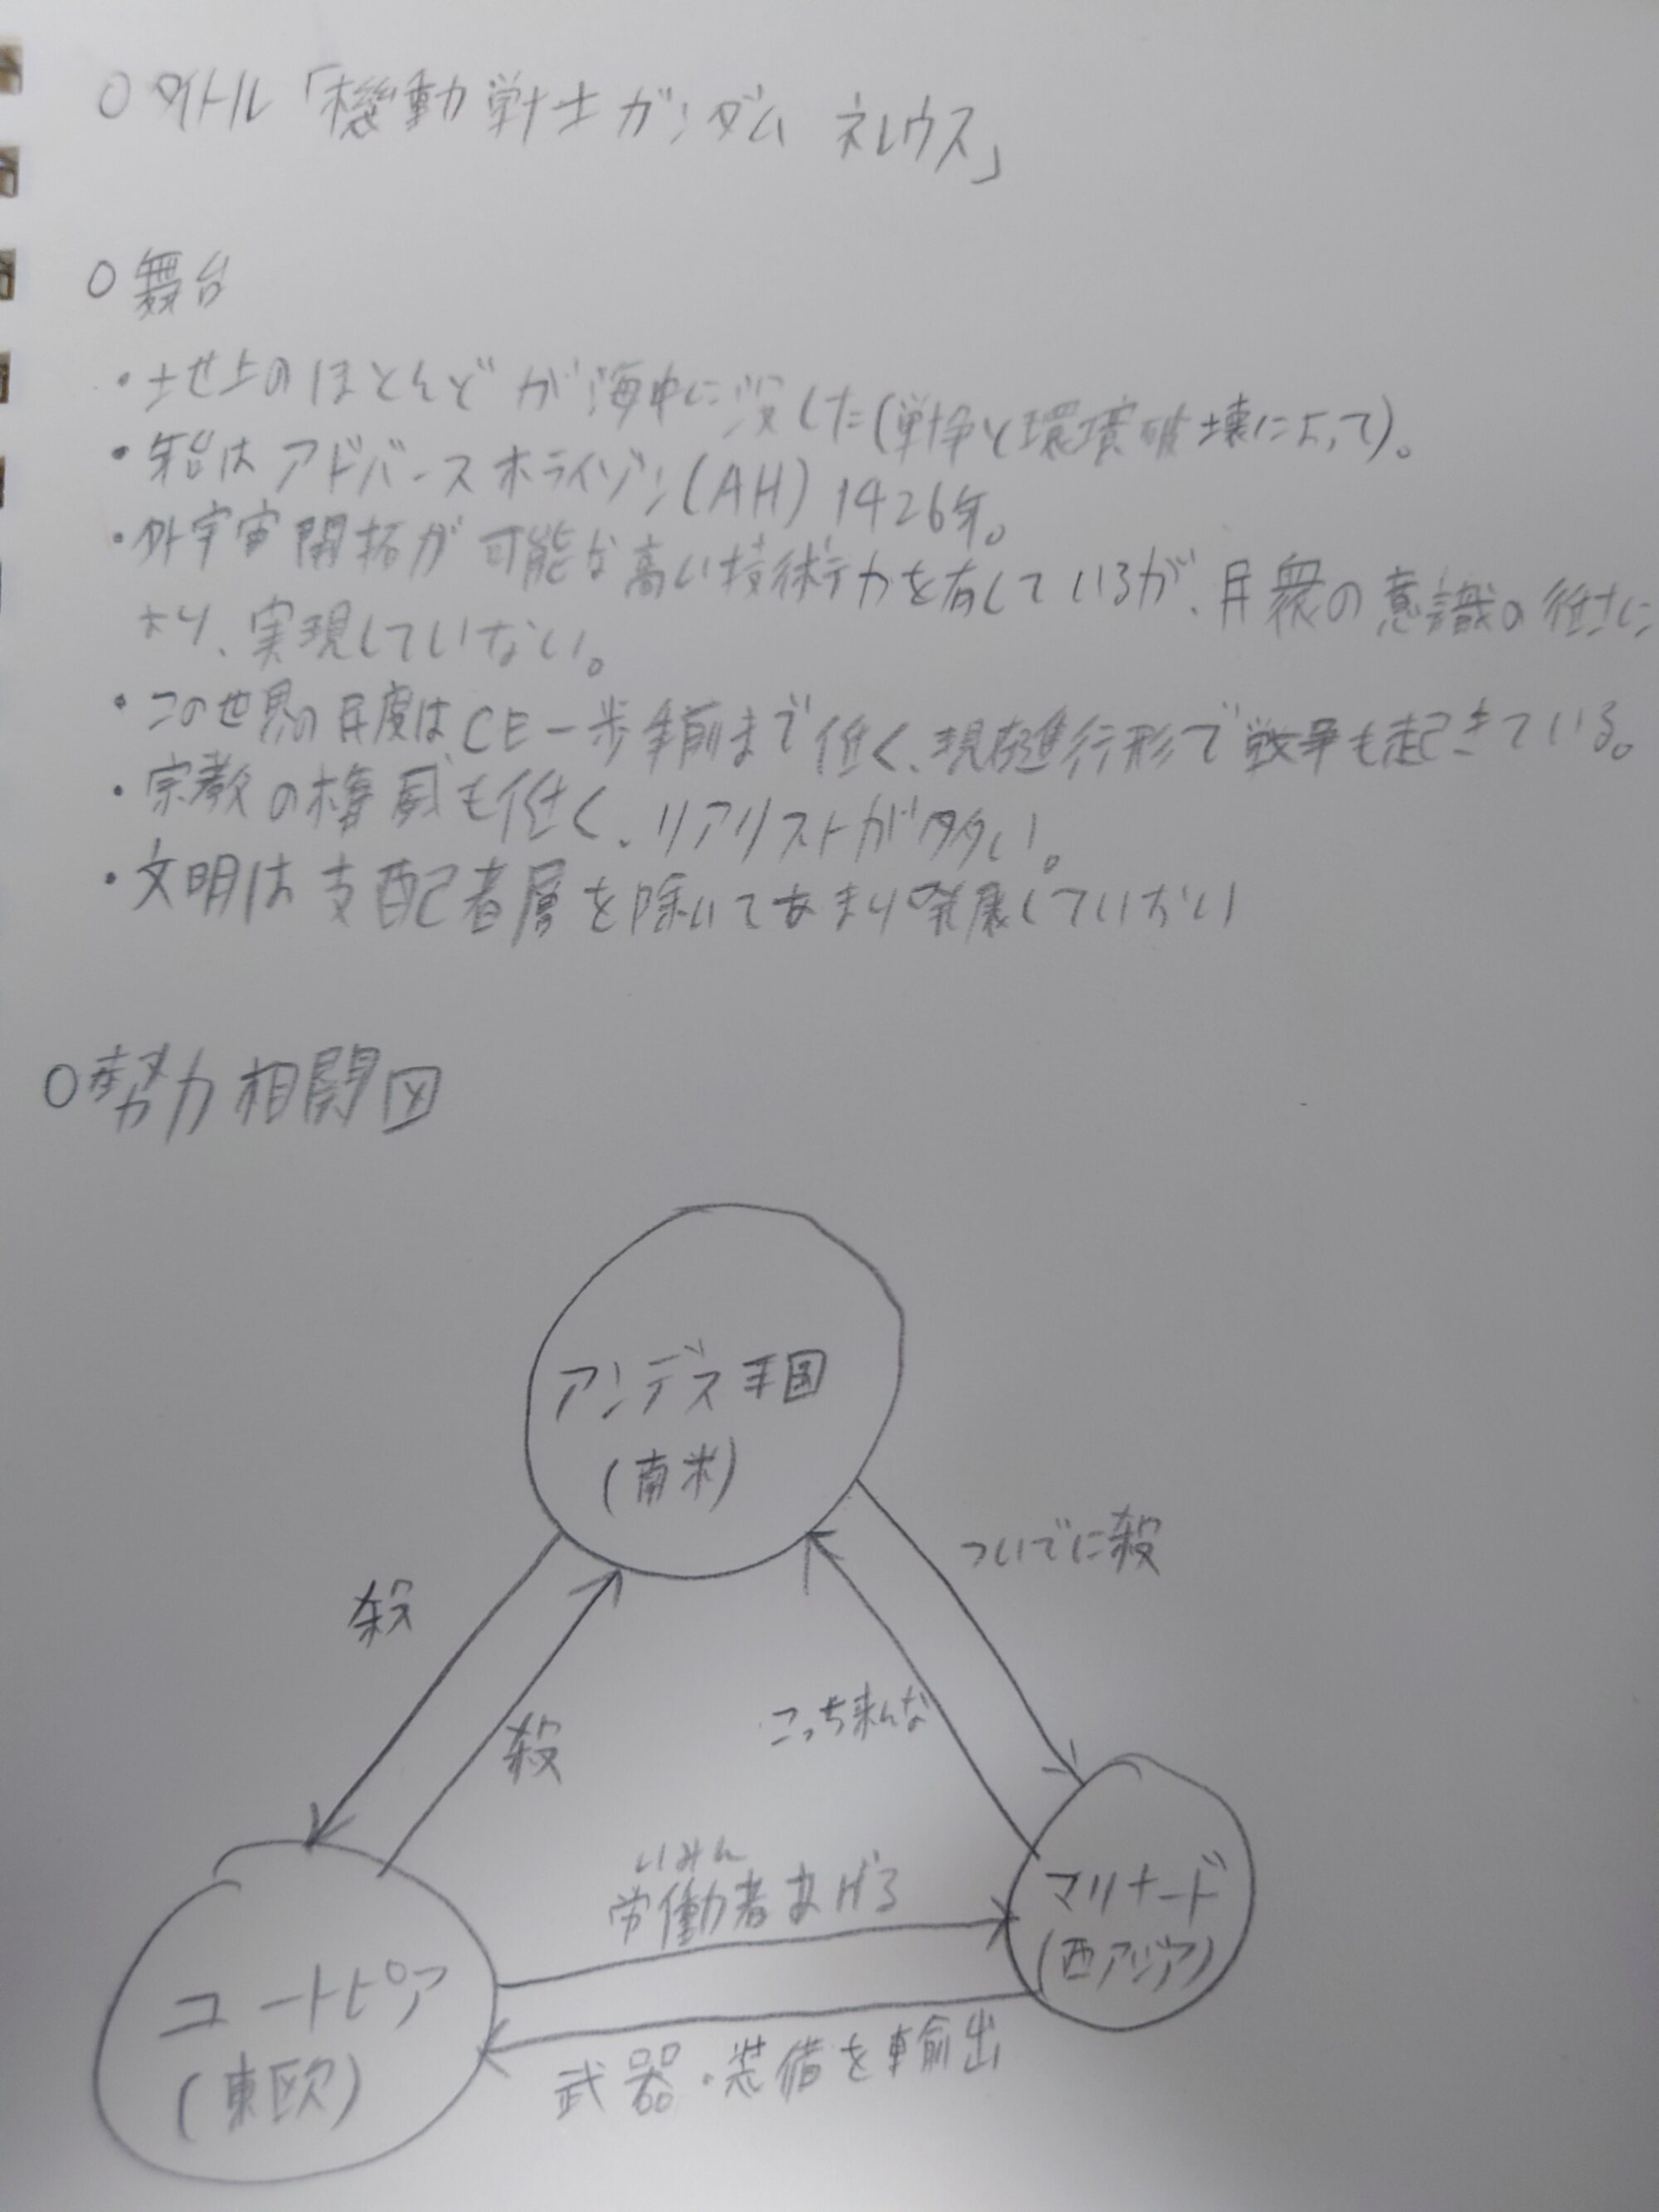 ○タイトル「機動戦士ガンダム ネレウス」
○舞台
・土地上のほとんどが海中に没した(戦争と環境破壊によって)。
・年号はアドバースホライゾン(AH)1426年。
・外宇宙開拓が可能な高い技術力を有しているが、民衆の意識の低さに
より、実現していない。
・この世界の民度はCE一歩手前まで低く、現在進行形で戦争も起きている。
・宗教の権威も低く、リアリストが多い。
・文明は支配者層を除いてあまり発展していない
○勢力相関図
アンデス王国
(南米)
ついでに殺
殺
殺
こっち来んな
いみん
労働者あげる
マリナード
(西アジア)
ユートピア
(東欧)
武器・装備を輸出